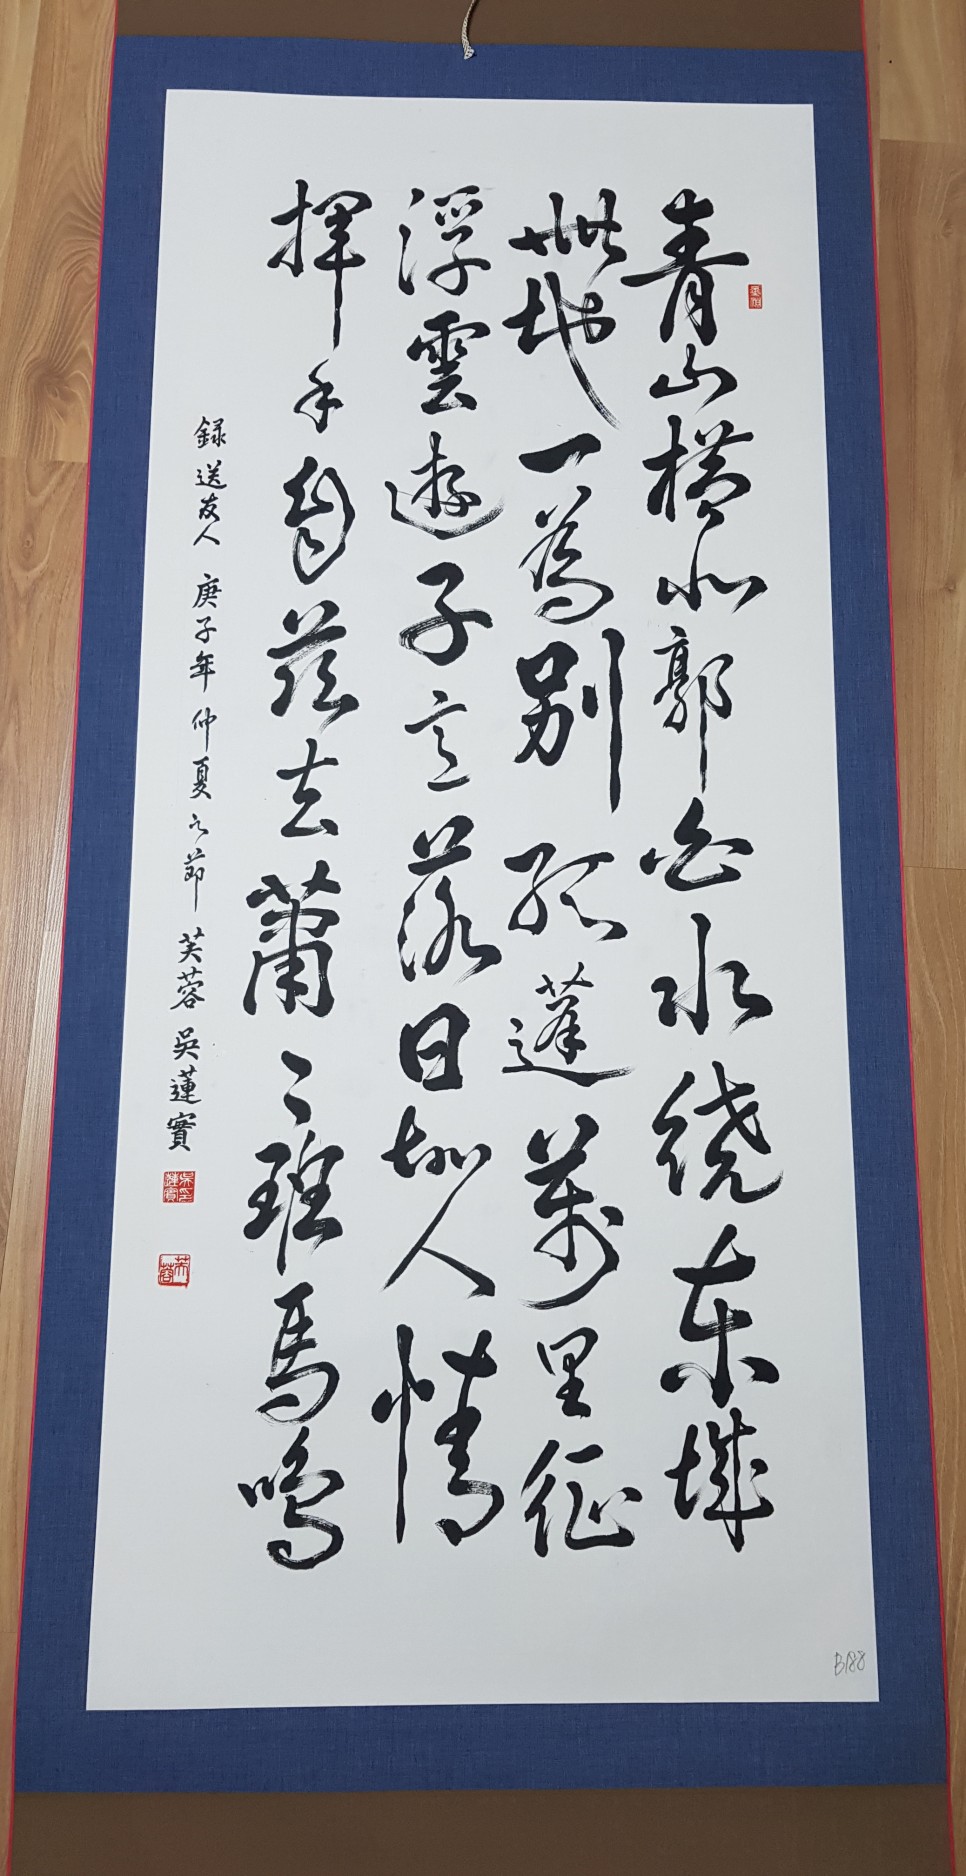 青山橫北郭白水繞東城
此地一為別孤蓬萬里征
浮雲遊子意落日故人情
揮手自茲去蕭〻班馬鳴
録送友人 庚子年 仲夏之節 芙蓉 吳蓮實
吳印蓮實
芙蓉
B188